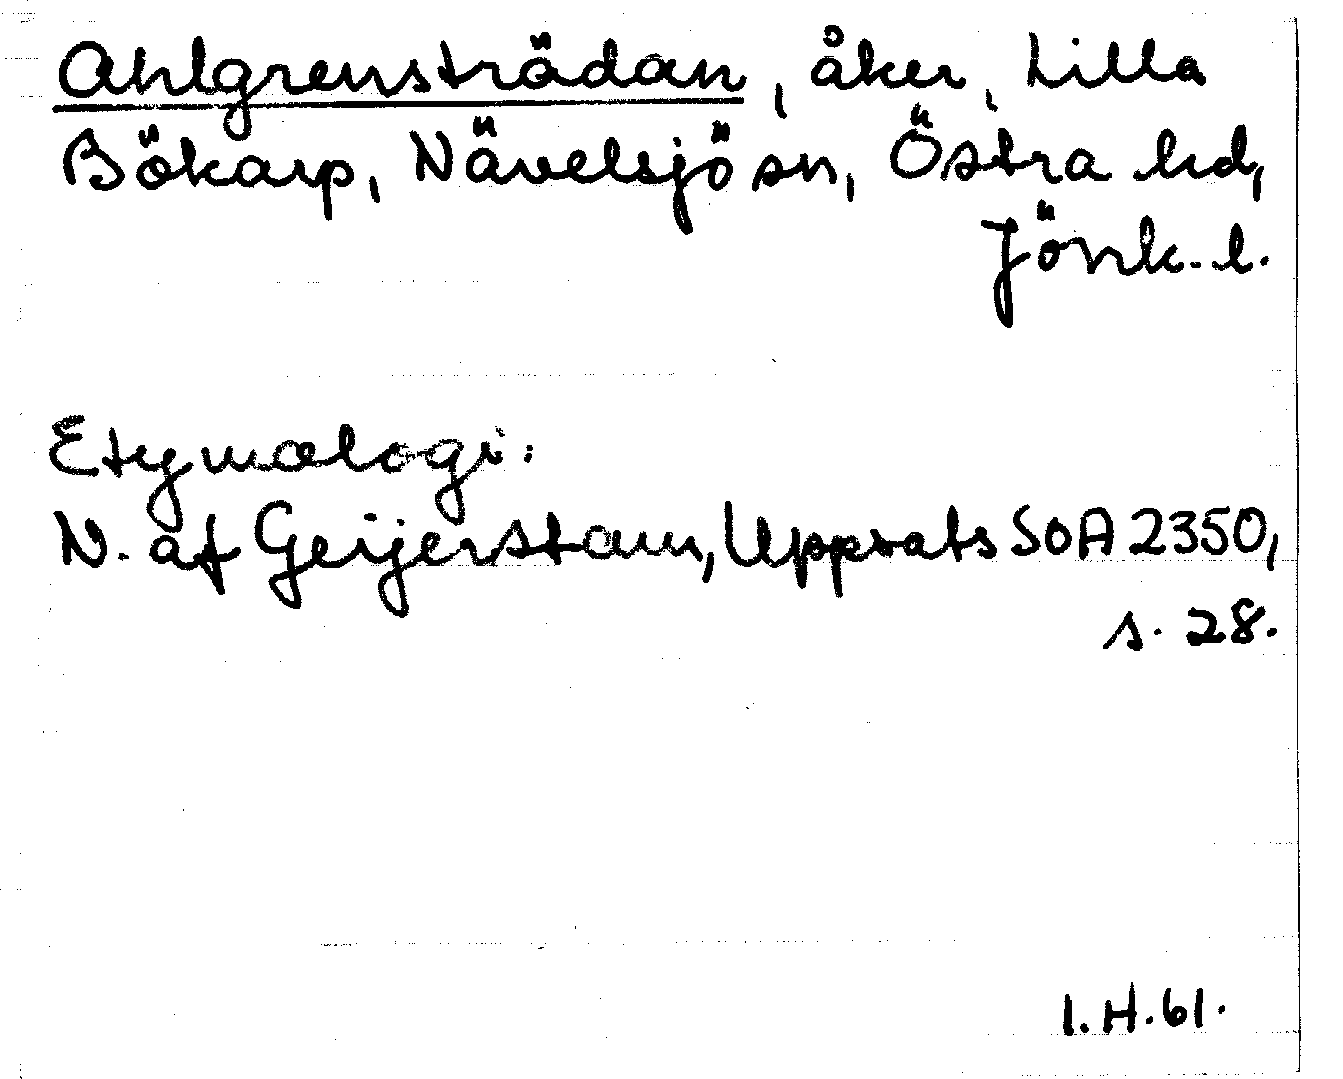 Ahlgrensträdan, åker, Lilla
Bökarp, Nävelsjö sn, Östra hd,
Jönk. l.
Etymologi:
N. af Geijerstam, Uppsats SOA 2350,
s. 28.
I.H.61.